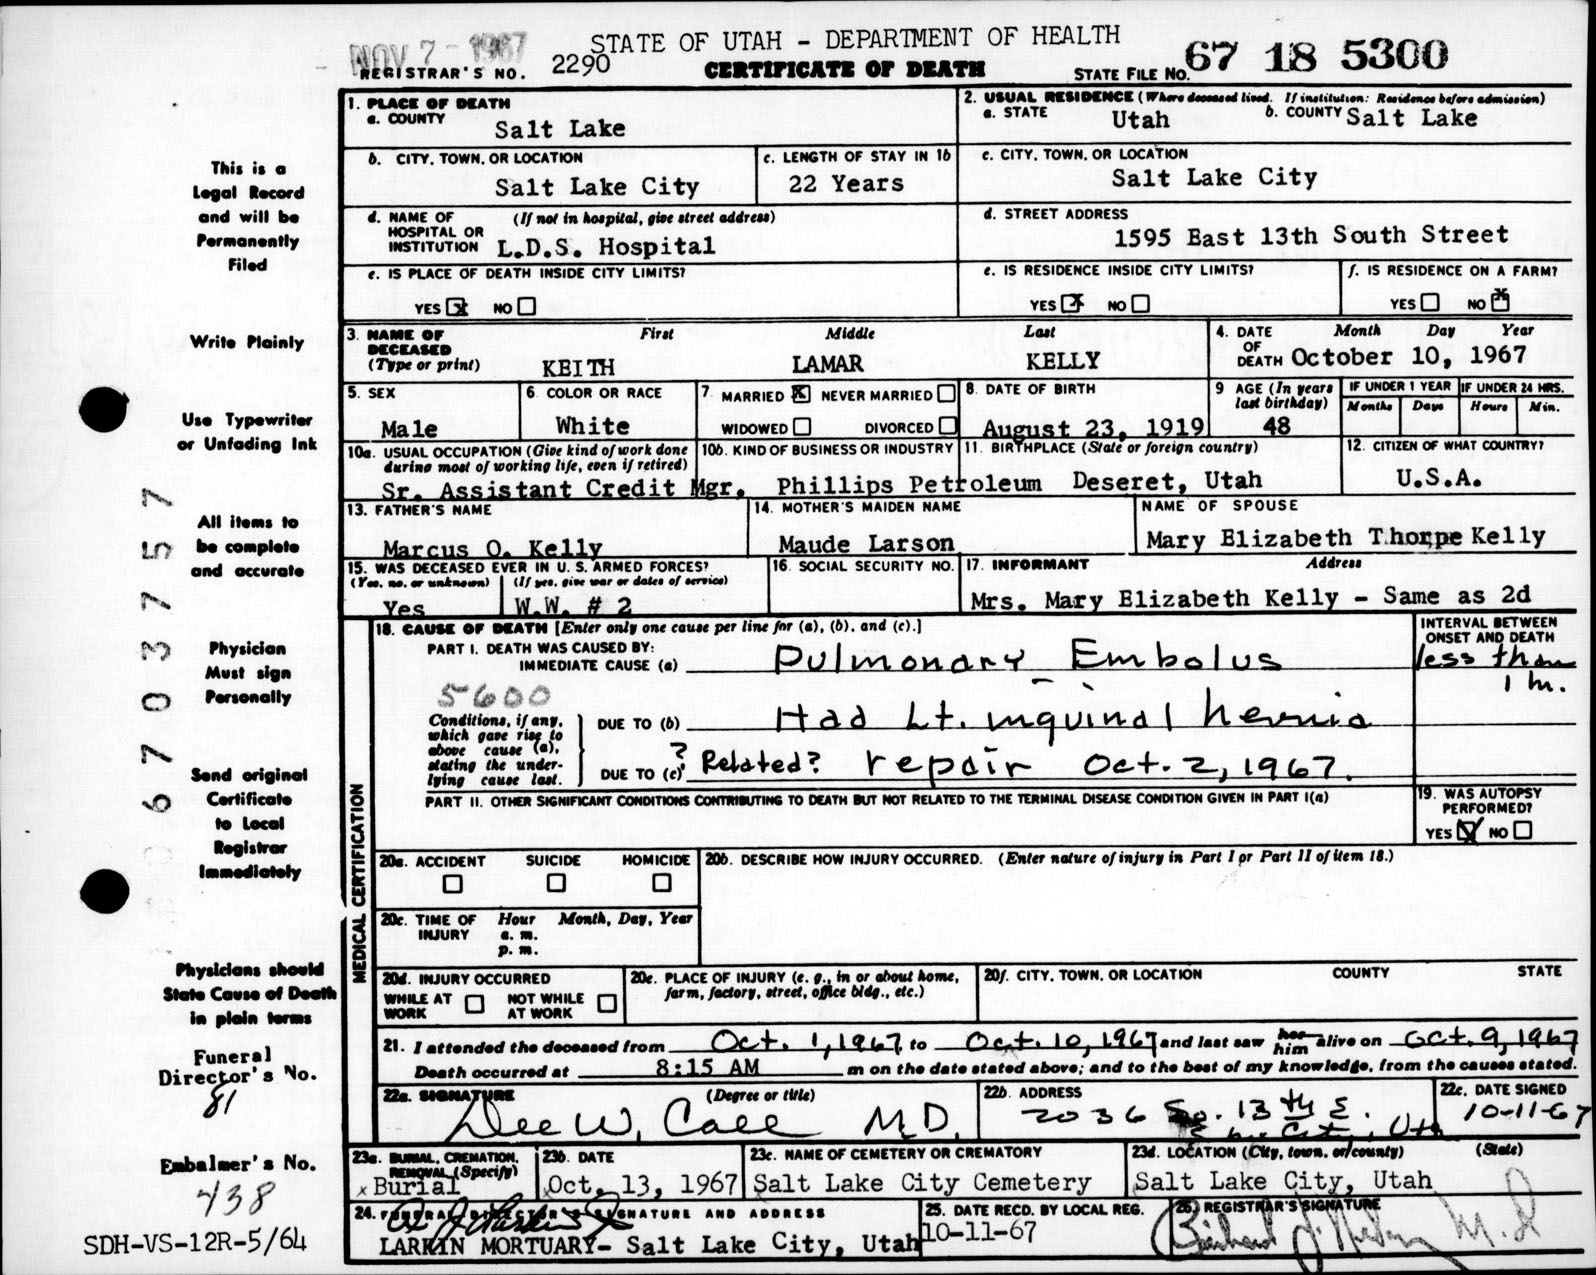 NOV 7 - 1967
STATE OF UTAH - DEPARTMENT OF HEALTH
REGISTRAR'S NO. 2290 CERTIFICATE OF DEATH STATE FILE NO. 67 18 5300
This is a
Legal Record
and will be
Permanently
Filed
Write Plainly
Use Typewriter
or Unfading Ink
All items to
be complete
and accurate
Physician
Must sign
Personally
Send original
Certificate
to Local
Registrar
Immediately
Physicians should
State Cause of Death
in plain terms
Funeral
Director's No.
81
Embalmer's No.
438
SDH-VS-12R-5/64
67037757
1. PLACE OF DEATH
a. COUNTY
Salt Lake
2. USUAL RESIDENCE (Where deceased lived. If institution: Residence before admission)
a. STATE Utah b. COUNTY Salt Lake
b. CITY, TOWN, OR LOCATION
Salt Lake City
c. LENGTH OF STAY IN 1b
22 Years
c. CITY, TOWN, OR LOCATION
Salt Lake City
d. NAME OF (If not in hospital, give street address)
HOSPITAL OR
INSTITUTION L.D.S. Hospital
d. STREET ADDRESS
1595 East 13th South Street
e. IS PLACE OF DEATH INSIDE CITY LIMITS?
YES X NO
e. IS RESIDENCE INSIDE CITY LIMITS?
YES X NO
f. IS RESIDENCE ON A FARM?
YES NO X
3. NAME OF First Middle Last
DECEASED
(Type or print) KEITH LAMAR KELLY
4. DATE Month Day Year
OF
DEATH October 10, 1967
5. SEX
Male
6. COLOR OR RACE
White
7. MARRIED X NEVER MARRIED
WIDOWED DIVORCED
8. DATE OF BIRTH
August 23, 1919
9 AGE (In years
last birthday)
48
IF UNDER 1 YEAR
Months Days
IF UNDER 24 HRS.
Hours Min.
10a. USUAL OCCUPATION (Give kind of work done
during most of working life, even if retired)
Sr. Assistant Credit Mgr.
10b. KIND OF BUSINESS OR INDUSTRY
Phillips Petroleum
11. BIRTHPLACE (State or foreign country)
Deseret, Utah
12. CITIZEN OF WHAT COUNTRY?
U.S.A.
13. FATHER'S NAME
Marcus O. Kelly
14. MOTHER'S MAIDEN NAME
Maude Larson
NAME OF SPOUSE
Mary Elizabeth Thorpe Kelly
15. WAS DECEASED EVER IN U.S. ARMED FORCES?
(Yes, no, or unknown) (If yes, give war or dates of service)
Yes W.W. # 2
16. SOCIAL SECURITY NO.
17. INFORMANT Address
Mrs. Mary Elizabeth Kelly - Same as 2d
MEDICAL CERTIFICATION
18. CAUSE OF DEATH [Enter only one cause per line for (a), (b), and (c).]
INTERVAL BETWEEN
ONSET AND DEATH
PART I. DEATH WAS CAUSED BY:
IMMEDIATE CAUSE (a) Pulmonary Embolus
less than
1 hr.
5600
Conditions, if any,
which gave rise to
above cause (a),
stating the under-
lying cause last.
DUE TO (b) Had Lt. inguinal hernia
DUE TO (c) ? Related? repair Oct. 2, 1967.
PART II. OTHER SIGNIFICANT CONDITIONS CONTRIBUTING TO DEATH BUT NOT RELATED TO THE TERMINAL DISEASE CONDITION GIVEN IN PART I(a)
19. WAS AUTOPSY
PERFORMED?
YES X NO
20a. ACCIDENT SUICIDE HOMICIDE
20b. DESCRIBE HOW INJURY OCCURRED. (Enter nature of injury in Part I or Part II of item 18.)
20c. TIME OF Hour Month, Day, Year
INJURY a. m.
p. m.
20d. INJURY OCCURRED
WHILE AT NOT WHILE
WORK AT WORK
20e. PLACE OF INJURY (e. g., in or about home,
farm, factory, street, office bldg., etc.)
20f. CITY, TOWN, OR LOCATION COUNTY STATE
21. I attended the deceased from Oct. 1, 1967 to Oct. 10, 1967 and last saw her him alive on Oct. 9, 1967
Death occurred at 8:15 AM m on the date stated above; and to the best of my knowledge, from the causes stated.
22a. SIGNATURE (Degree or title)
Dee W. Call M.D.
22b. ADDRESS
2036 So. 13th E.
City, Utah
22c. DATE SIGNED
10-11-67
23a. BURIAL, CREMATION,
REMOVAL (Specify)
x Burial
23b. DATE
Oct. 13, 1967
23c. NAME OF CEMETERY OR CREMATORY
Salt Lake City Cemetery
23d. LOCATION (City, town, or county) (State)
Salt Lake City, Utah
24. FUNERAL DIRECTOR'S SIGNATURE AND ADDRESS
LARKIN MORTUARY- Salt Lake City, Utah
25. DATE RECD. BY LOCAL REG.
10-11-67
26. REGISTRAR'S SIGNATURE
M.D